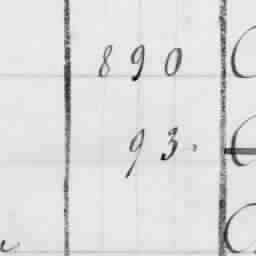 890
93.